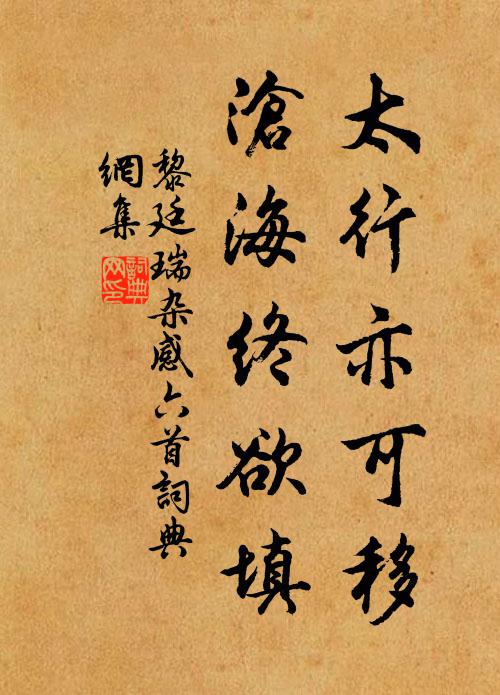 太行亦可移
滄海終欲填
黎廷瑞杂感六首詞典
網集
詞典
网印